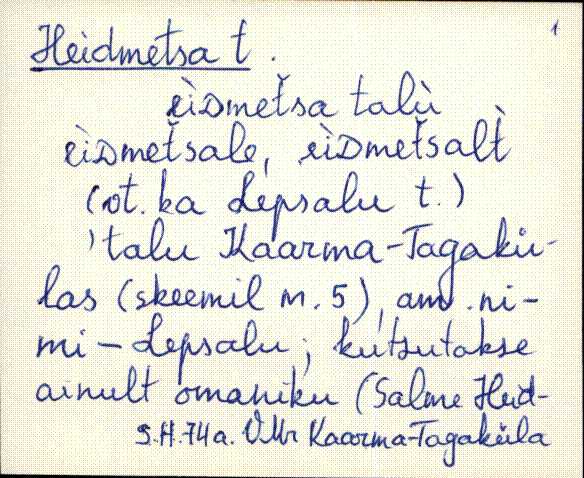 1
Heidmetsa t.
èiᴅmet̆sa talù
èiᴅmet̆sale, èiᴅmet̆salt̀
(ot. ka Lepsalu t.)
'talu Kaarma-Tagakü-
las (skeemil n. 5), am. ni-
mi - Lepsalu; kutsutakse
ainult omaniku (Salme Heid-
S.H. 74a. VMr Kaarma-Tagaküla